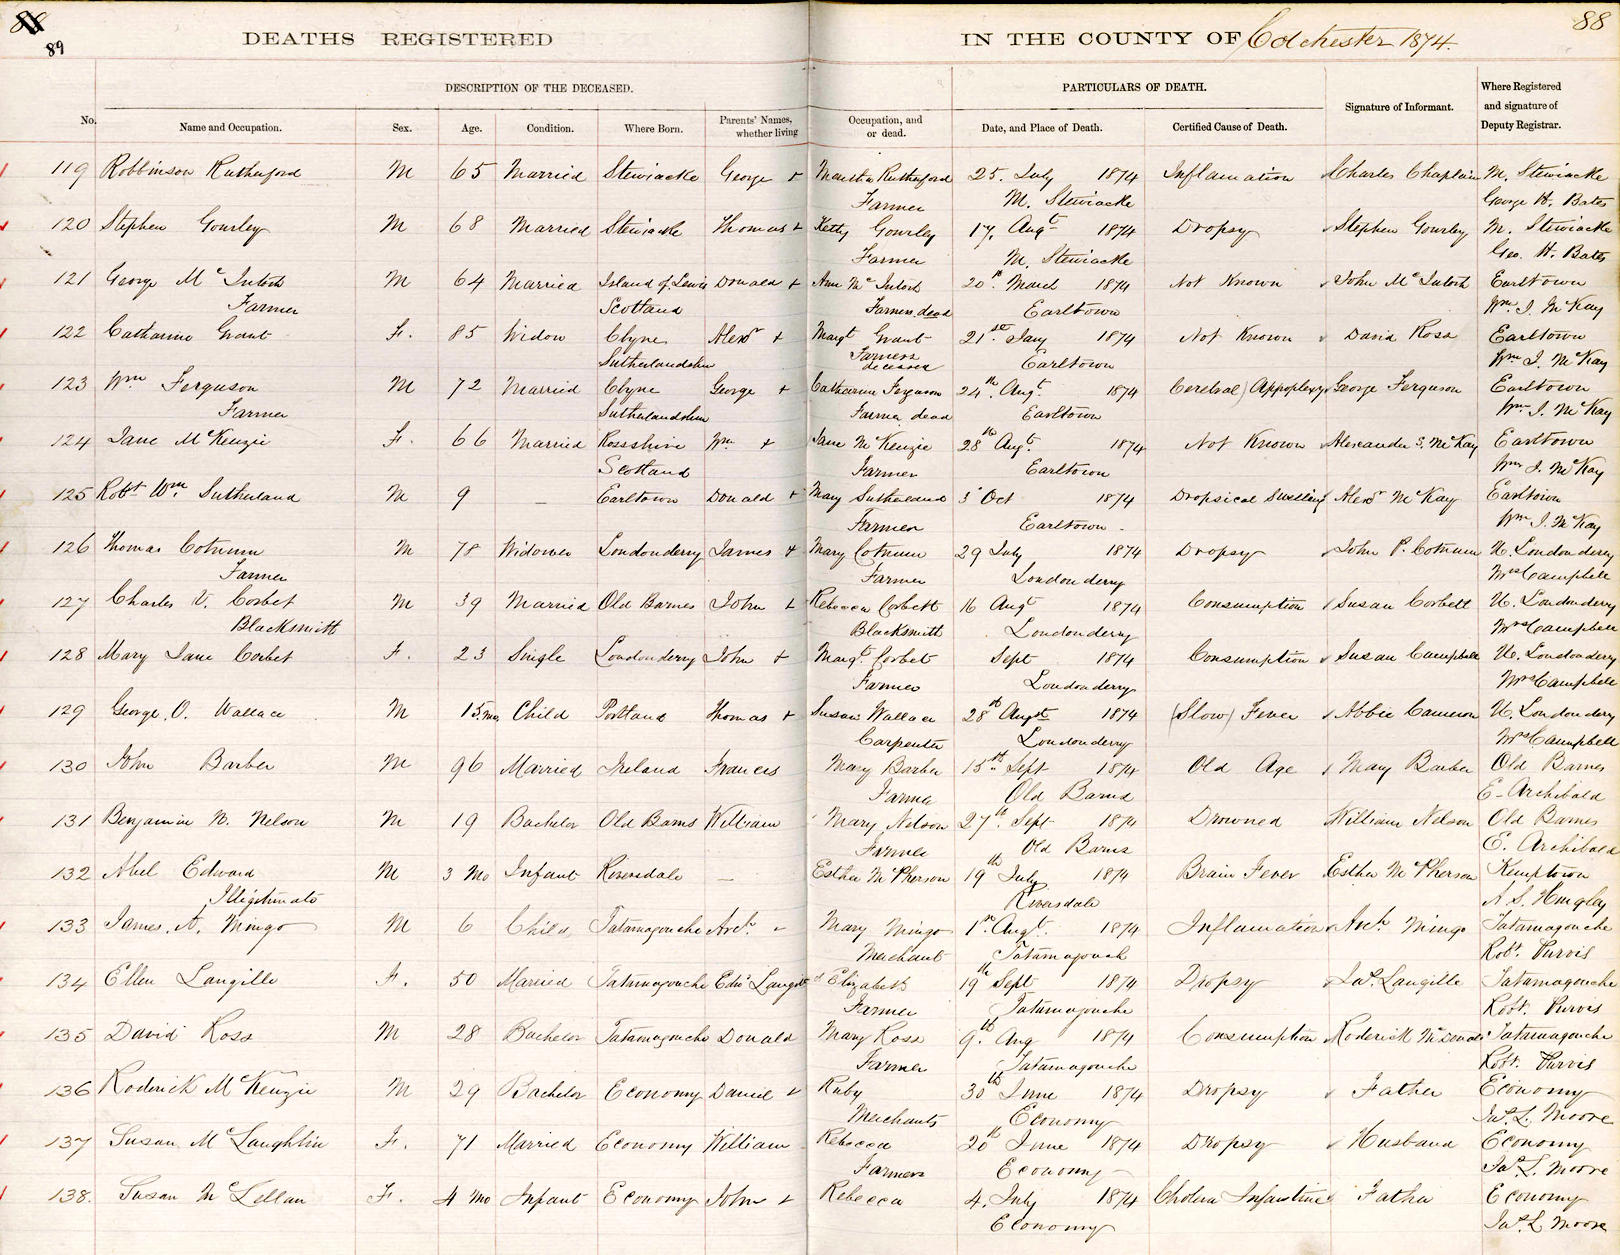 88
89
DEATHS REGISTERED IN THE COUNTY OF Colchester 1874.
88
DESCRIPTION OF THE DECEASED. PARTICULARS OF DEATH. Signature of Informant. Where Registered and signature of Deputy Registrar.
No. Name and Occupation. Sex. Age. Condition. Where Born. Parents' Names, whether living Occupation, and or dead. Date, and Place of Death. Certified Cause of Death.
119 Robbinson Rutherford M 65 Married Stewiacke George + Rutherford 25. July 1874 Inflamation Charles Chaplain M. Stewiacke
Farmer M. Stewiacke George H. Bates
120 Stephen Gourley M 68 Married Stewiacke Thomas + Ketty Gourley 17. Augt 1874 Dropsy Stephen Gourley M. Stewiacke
Farmer M. Stewiacke Geo. H. Bates
121 George McIntosh M 64 Married Island of Lewis Donald + Ann McIntosh 20th March 1874 Not Known John McIntosh Earltown
Farmer Scotland Farmer, dead Earltown Wm. J. McKay
122 Catharine Grant F. 85 Widow Clyne Alexr + Margt Grant 21st Jany 1874 Not Known David Ross Earltown
Sutherlandshire Farmers Earltown Wm J. McKay
123 Wm Ferguson M 72 Married Clyne George + Catharine Ferguson 24th Augt. 1874 Cerebral (Appoplexy George Ferguson Earltown
Farmer Sutherlandshire Farmer dead Earltown Wm. J. McKay
124 Jane McKenzie F. 66 Married Rossshire Wm. + Jane McKenzie 28th Augt. 1874 Not Known Alexander S. McKay Earltown
Scotland Farmer Earltown Wm J. McKay
125 Robt Wm. Sutherland M 9 — Earltown Donald + Mary Sutherland 3 Oct 1874 Dropsical Swelling Alexr McKay Earltown
Farmer Earltown Wm J. McKay
126 Thomas Cotnum M 78 Widower Londonderry James + Mary Cotnum 29 July 1874 Dropsy John P. Cotnum U. Londonderry
Farmer Farmer Londonderry Campbell
127 Charles V. Corbet M 39 Married Old Barnes John + Rebecca Corbett 16 Augt 1874 Consumption Susan Corbett U. Londonderry
Blacksmith Blacksmith Londonderry Campbell
128 Mary Jane Corbet F. 23 Single Londonderry John + Margt. Corbet Sept 1874 Consumption Susan Campbell U. Londonderry
Farmer Londonderry Campbell
129 George. O. Wallace M 15 mo Child Portland Thomas + Susan Wallace 28th Augst 1874 (Slow) Fever Abbie Cameron U. Londonderry
Carpenter Londonderry Campbell
130 John Barber M 96 Married Ireland Francis Mary Barber 15th Sept 1874 Old Age Mary Barber Old Barnes
Farmer Old Barns E- Archibald
131 Benjamin N. Nelson M 19 Bachelor Old Barns William Mary Nelson 27th. Sept 1874 Drowned William Nelson Old Barnes
Farmer Old Barns E. Archibald
132 Abel Edward M 3 Mo Infant Riversdale — Esther McPherson 19th July 1874 Brain Fever Esther McPherson Kemptown
Illigitimate Riversdale A S.
133 James. A. Mingo M 6 Child Tatamagouche Archd. Mary Mingo 1st. Augt. 1874 Inflamation Archd. Mingo Tatamagouche
Merchant Tatamagouch Robt. Purvis
134 Ellen Langille F. 50 Married Tatamagouche Langille & Elizabeth 19th Sept 1874 Dropsy Jas. Langille Tatamagouche
Farmer Tatamagouche Robt. Purvis
135 David Ross M 28 Bachelor Tatamagouche Donald Mary Ross 9th. Aug 1874 Consumption Roderick McDonald Tatamagouche
Farmer Tatamagouche Robt. Purvis
136 Roderick McKenzie M 29 Bachelor Economy Daniel + Ruby 30th June 1874 Dropsy Father Economy
Merchants Economy Jas. L. Moore
137 Susan McLaughlin F. 71 Married Economy William Rebecca 20th June 1874 Dropsy Husband Economy
Farmers Economy Jas. L. Moore
138. Susan McLellan F. 4 mo Infant Economy John + Rebecca 4. July 1874 Cholera Infantine Father Economy
Economy Jas. L Moore